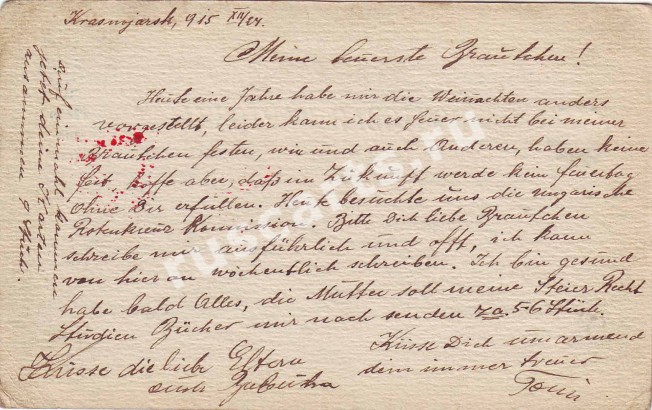 Krasnojarsk, 915 XII/24.
Meine teuerste Brautchen!
Heute eine Jahre habe mir die Weinnachten anders
vorgestellt, leider kann ich es heuer nicht bei meiner
Brautchen festen, wir und auch Anderen, haben keine
Zeit hoffe aber, daß im Zukunft werde kein feiertag
ohne Dir erfüllen. Heute besuchte uns die ungarische
Rotenkreuz Komission. Bitte Dich liebe Brautchen
schreibe mir ausführlich und offt, ich kann
von hier an wöchentlich schreiben. Ich bin gesund
habe bald Alles, die Mutter soll meine Steier Recht
Studien Bücher mir nach senden za. 5-6 Stück.
Küsse die liebe Eltern
und
Küsse Dich umarmend
dem immer treuer
Toni
auf einmahl kommen
jetzt deine Karten
zusammen 9 Stück.
ruscards.ru